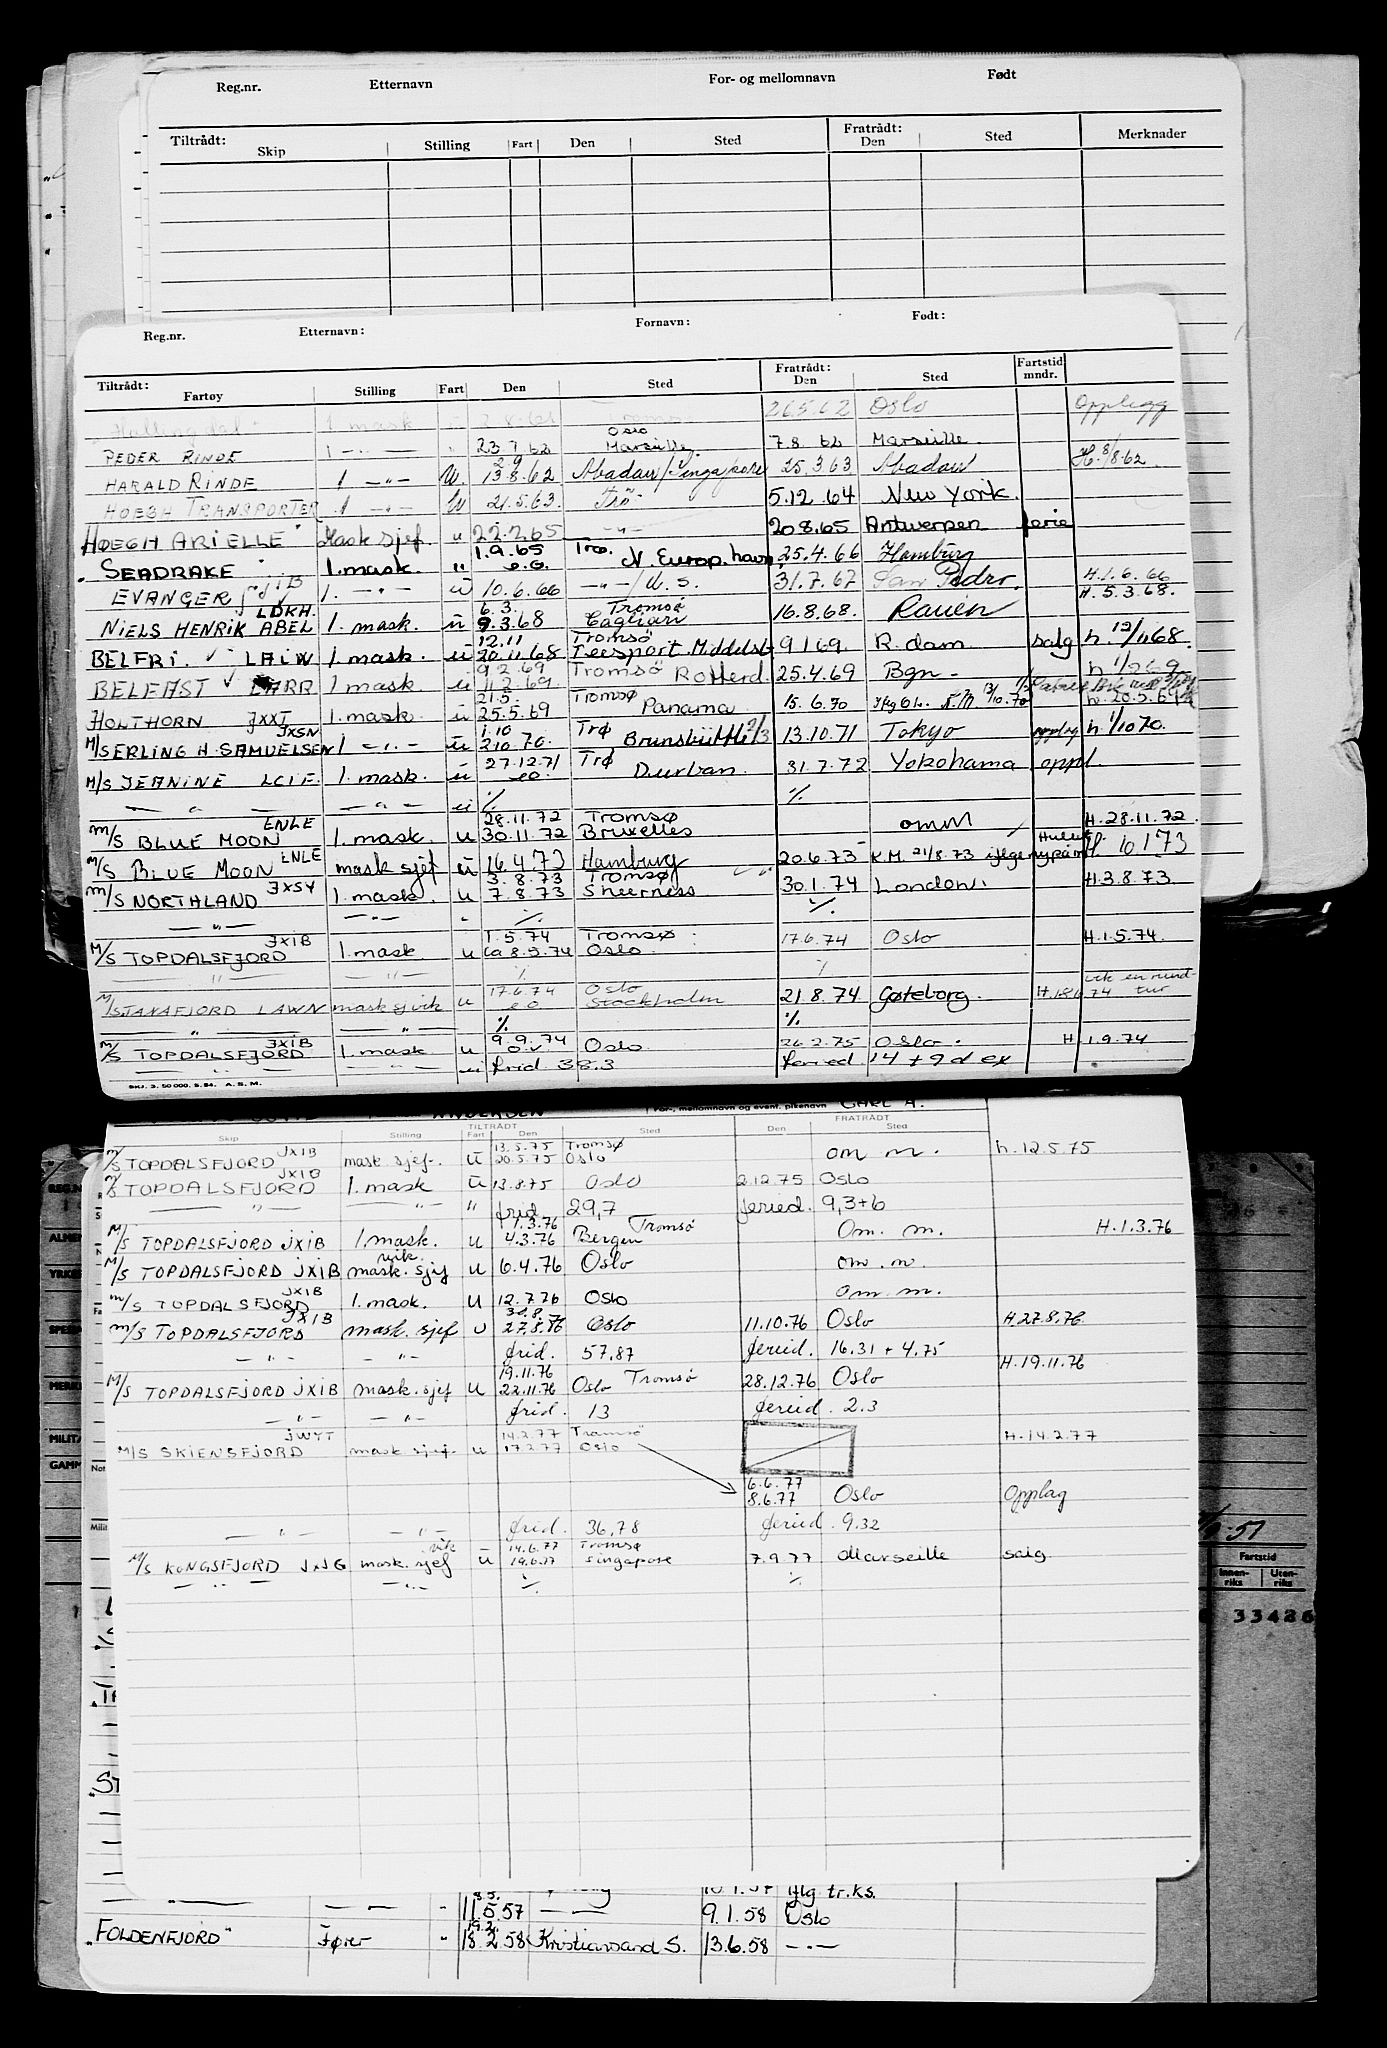 Reg.nr. Etternavn For- og mellomnavn Født
Tiltrådt: Skip Stilling Fart Den Sted Fratrådt: Den Sted Merknader
Reg.nr. Etternavn: Fornavn: Født:
Tiltrådt: Fartøy Stilling Fart Den Sted Fratrådt: Den Sted Fartstid mndr.
1 mask 26.5.62 Oslo Opplegg
Oslo
PEDER RINDE 1 -"- " 23.7.62 Marseille 7.8.62 Marseille.
29
HARALD RINDE 1 -"- U. 13.8.62 Abadan/Singapore 25.3.63 Abadan H. 8/8.62
HOEGH TRANSPORTER 1 -"- U 21.5.63. 5.12.64 New York.
HØEGH ARIELLE Mask sjef. u 22.2.65 -"- 20.8.65 Antwerpen ferie
1.9.65 Trø.
SEADRAKE 1. mask. " e.o. N. Europ. havn 25.4.66 Hamburg
EVANGER 1. -"- ü 10.6.66 -"-/U.S. 31.7.67 San Pedro. H.1.6.66
LDKH. 6.3. Tromsø H.5.3.68.
NIELS HENRIK ABEL 1. mask. ü 9.3.68 Cagliari 16.8.68. Rouen
12.11 Tromsø
BELFRI. LAIW 1. mask. ü 20.11.68 Teesport Middelsb 9.1.69. R.dam salg h. 12/11 68
9.2.69 Tromsø
BELEAST LARR 1 mask. ü 11.2.69. Rotterd. 25.4.69 Bgn.
21.5. Tromsø
HOLTHORN JXXT 1. mask. ü 25.5.69 Panama 15.6.70 13/10.70 h. 20.5.69
JXSN 1.10 Trø
M/S ERLING H. SAMUELSEN 1 -"- ü 2.10.70. 13.10.71 Tokyo opplag h. 1/10 70.
27.12.71 Trø
M/S JEANINE LCIF. 1. mask. ü e.o. Durban. 31.7.72 Yokohama oppl.
-"- -"- ü % %
LNLE 28.11.72 Tromsø
M/S BLUE MOON 1. mask. u 30.11.72 Bruxelles omm H.28.11.72.
M/S BLUE MOON LNLE mask sjef ü 16.4.73 Hamburg 20.6.73 K.M. 21/8.73 H. 10.1.73
3.8.73 Tromsø
M/S NORTHLAND JXSY 1. mask. u 7.8.73 Sheerness 30.1.74 London. H.3.8.73.
-"- -"- " % %
JXIB 1.5.74 Tromsø
M/S TOPDALSFJORD 1. mask u ca 8.5.74 Oslo. 17.6.74 Oslo H.1.5.74.
-"- -"- % %
17.6.74 Oslo vik en rund-
M/S TANAFJORD LAWN mask sj vik u e.o Stockholm 21.8.74 Gøteborg. H.18.6.74 tur
-"- -"- % %
JXIB 9.9.74
M/S TOPDALSFJORD 1. mask u o.v. Oslo 26.2.75 Oslo. H 1.9.74
-"- -"- ü frid 38.3 feried 14 + 9 d ex
SKJ. 3. 50 000. 5. 54. A.S.M.
ANDERSEN For-, mellomnavn og event. pikenavn CARL A.
TILTRÅDT FRATRÅDT
Skip Stilling Fart Den Sted Den Sted
JXIB 13.5.75 Tromsø
M/S TOPDALSFJORD mask. sjef. ü 20.5.75 Oslo om m. h.12.5.75
M/S TOPDALSFJORD JXIB 1. mask ü 13.8.75 Oslo 2.12.75 Oslo
-"- -"- " frid 29,7 feried. 9,3+6
1.3.76 Tromsø
M/S TOPDALSFJORD JXIB 1. mask. u 4.3.76 Bergen Om. m. H.1.3.76
vik.
M/S TOPDALSFJORD JXIB mask. sjef u 6.4.76 Oslo om. m.
M/S TOPDALSFJORD JXIB 1. mask. u 12.7.76 Oslo om. m.
M/S TOPDALSFJORD JXIB mask. sjef u 27.8.76 Oslo 11.10.76 Oslo H.27.8.76
-"- -"- frid. 57,87 feried. 16.31 + 4.75
19.11.76 H.19.11.76
M/S TOPDALSFJORD JXIB mask. sjef u 22.11.76 Oslo Tromsø 28.12.76 Oslo
-"- -"- frid. 13 feried. 2.3
JWYT 14.2.77 Tromsø H.14.2.77
M/S SKIENSFJORD mask sjef. u 17.2.77 Oslo
6.6.77
8.6.77 Oslo Opplag
-"- -"- frid. 36,78 feried. 9.32
vik 14.6.77 Tromsø
M/S KONGSFJORD JXJG mask. sjef ü 19.6.77 Singapore 7.9.77 Marseille salg
-"- -"- % %
9.51
Fartstid
Innen-riks Uten-riks
33426
ifلg tr.ks.
-"- " 11.5.57 -"- 9.1.58 Oslo
19.2.
"FOLDENFJORD" Fører " 18.2.58 Kristiansand S. 13.6.58 -"-